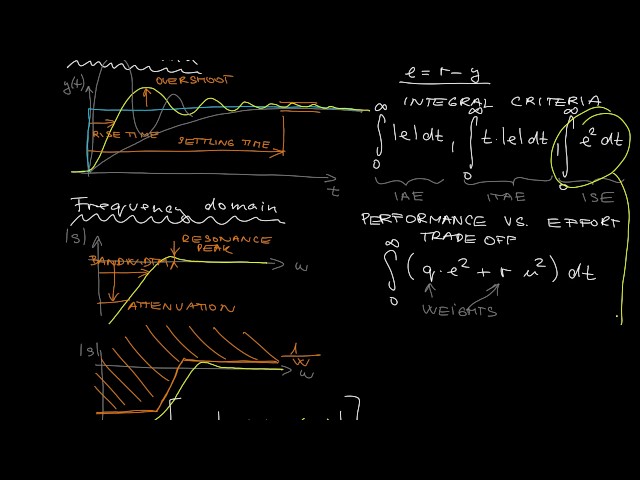 y(t)
OVERSHOOT
RISE TIME
SETTLING TIME
t
Frequency domain
|S|
RESONANCE
PEAK
BANDWIDTH
ω
ATTENUATION
|S|
1/W
ω
e = r - y
INTEGRAL CRITERIA
∫₀^∞ |e| dt, ∫₀^∞ t·|e| dt, ∫₀^∞ e² dt
IAE ITAE ISE
PERFORMANCE VS. EFFORT
TRADE OFF
∫₀^∞ (q·e² + r u²) dt
WEIGHTS